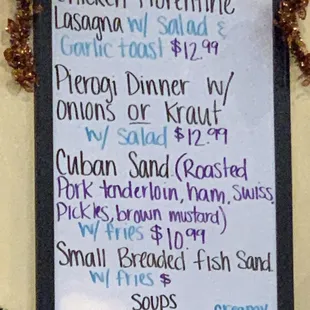 Chicken Florentine
Lasagna w/ Salad &
Garlic toast $12.99
Pierogi Dinner w/
onions or Kraut
w/ Salad $12.99
Cuban Sand. (Roasted
Pork tenderloin, ham, Swiss
Pickles, brown mustard)
w/ fries $10.99
Small Breaded fish Sand.
w/ fries $
SOUPS
creamy